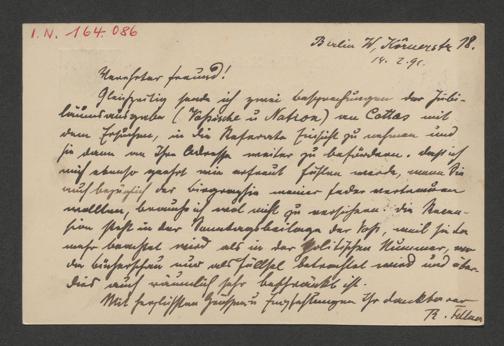 I.N. 164.086
Berlin W, Körnerstr 18.
14. 2. 91.
Verehrter Freund!
Gleichzeitig sende ich zwei Besprechungen der Jubi-
läumsausgabe (Vossische u Nation) an Cottas mit
dem Ersuchen, in die Referate Einsicht zu nehmen und
sie dann an Ihre Adresse weiter zu befördern. Daß ich
mich ebenso geehrt wie erfreut fühlen werde, wenn Sie
auch bezüglich der Biographie meiner Feder vertrauen
wollten, brauche ich wol nicht zu versichern: die Recen-
sion steht in der Sonntagsbeilage der Voss, weil sie da
mehr beachtet wird als in der politischen Nummer, wo
die Bücherschau nur als Füllsel betrachtet wird und über-
dies auch räumlich sehr beschränkt ist.
Mit herzlichsten Grüßen u Empfehlungen Ihr dankbarer